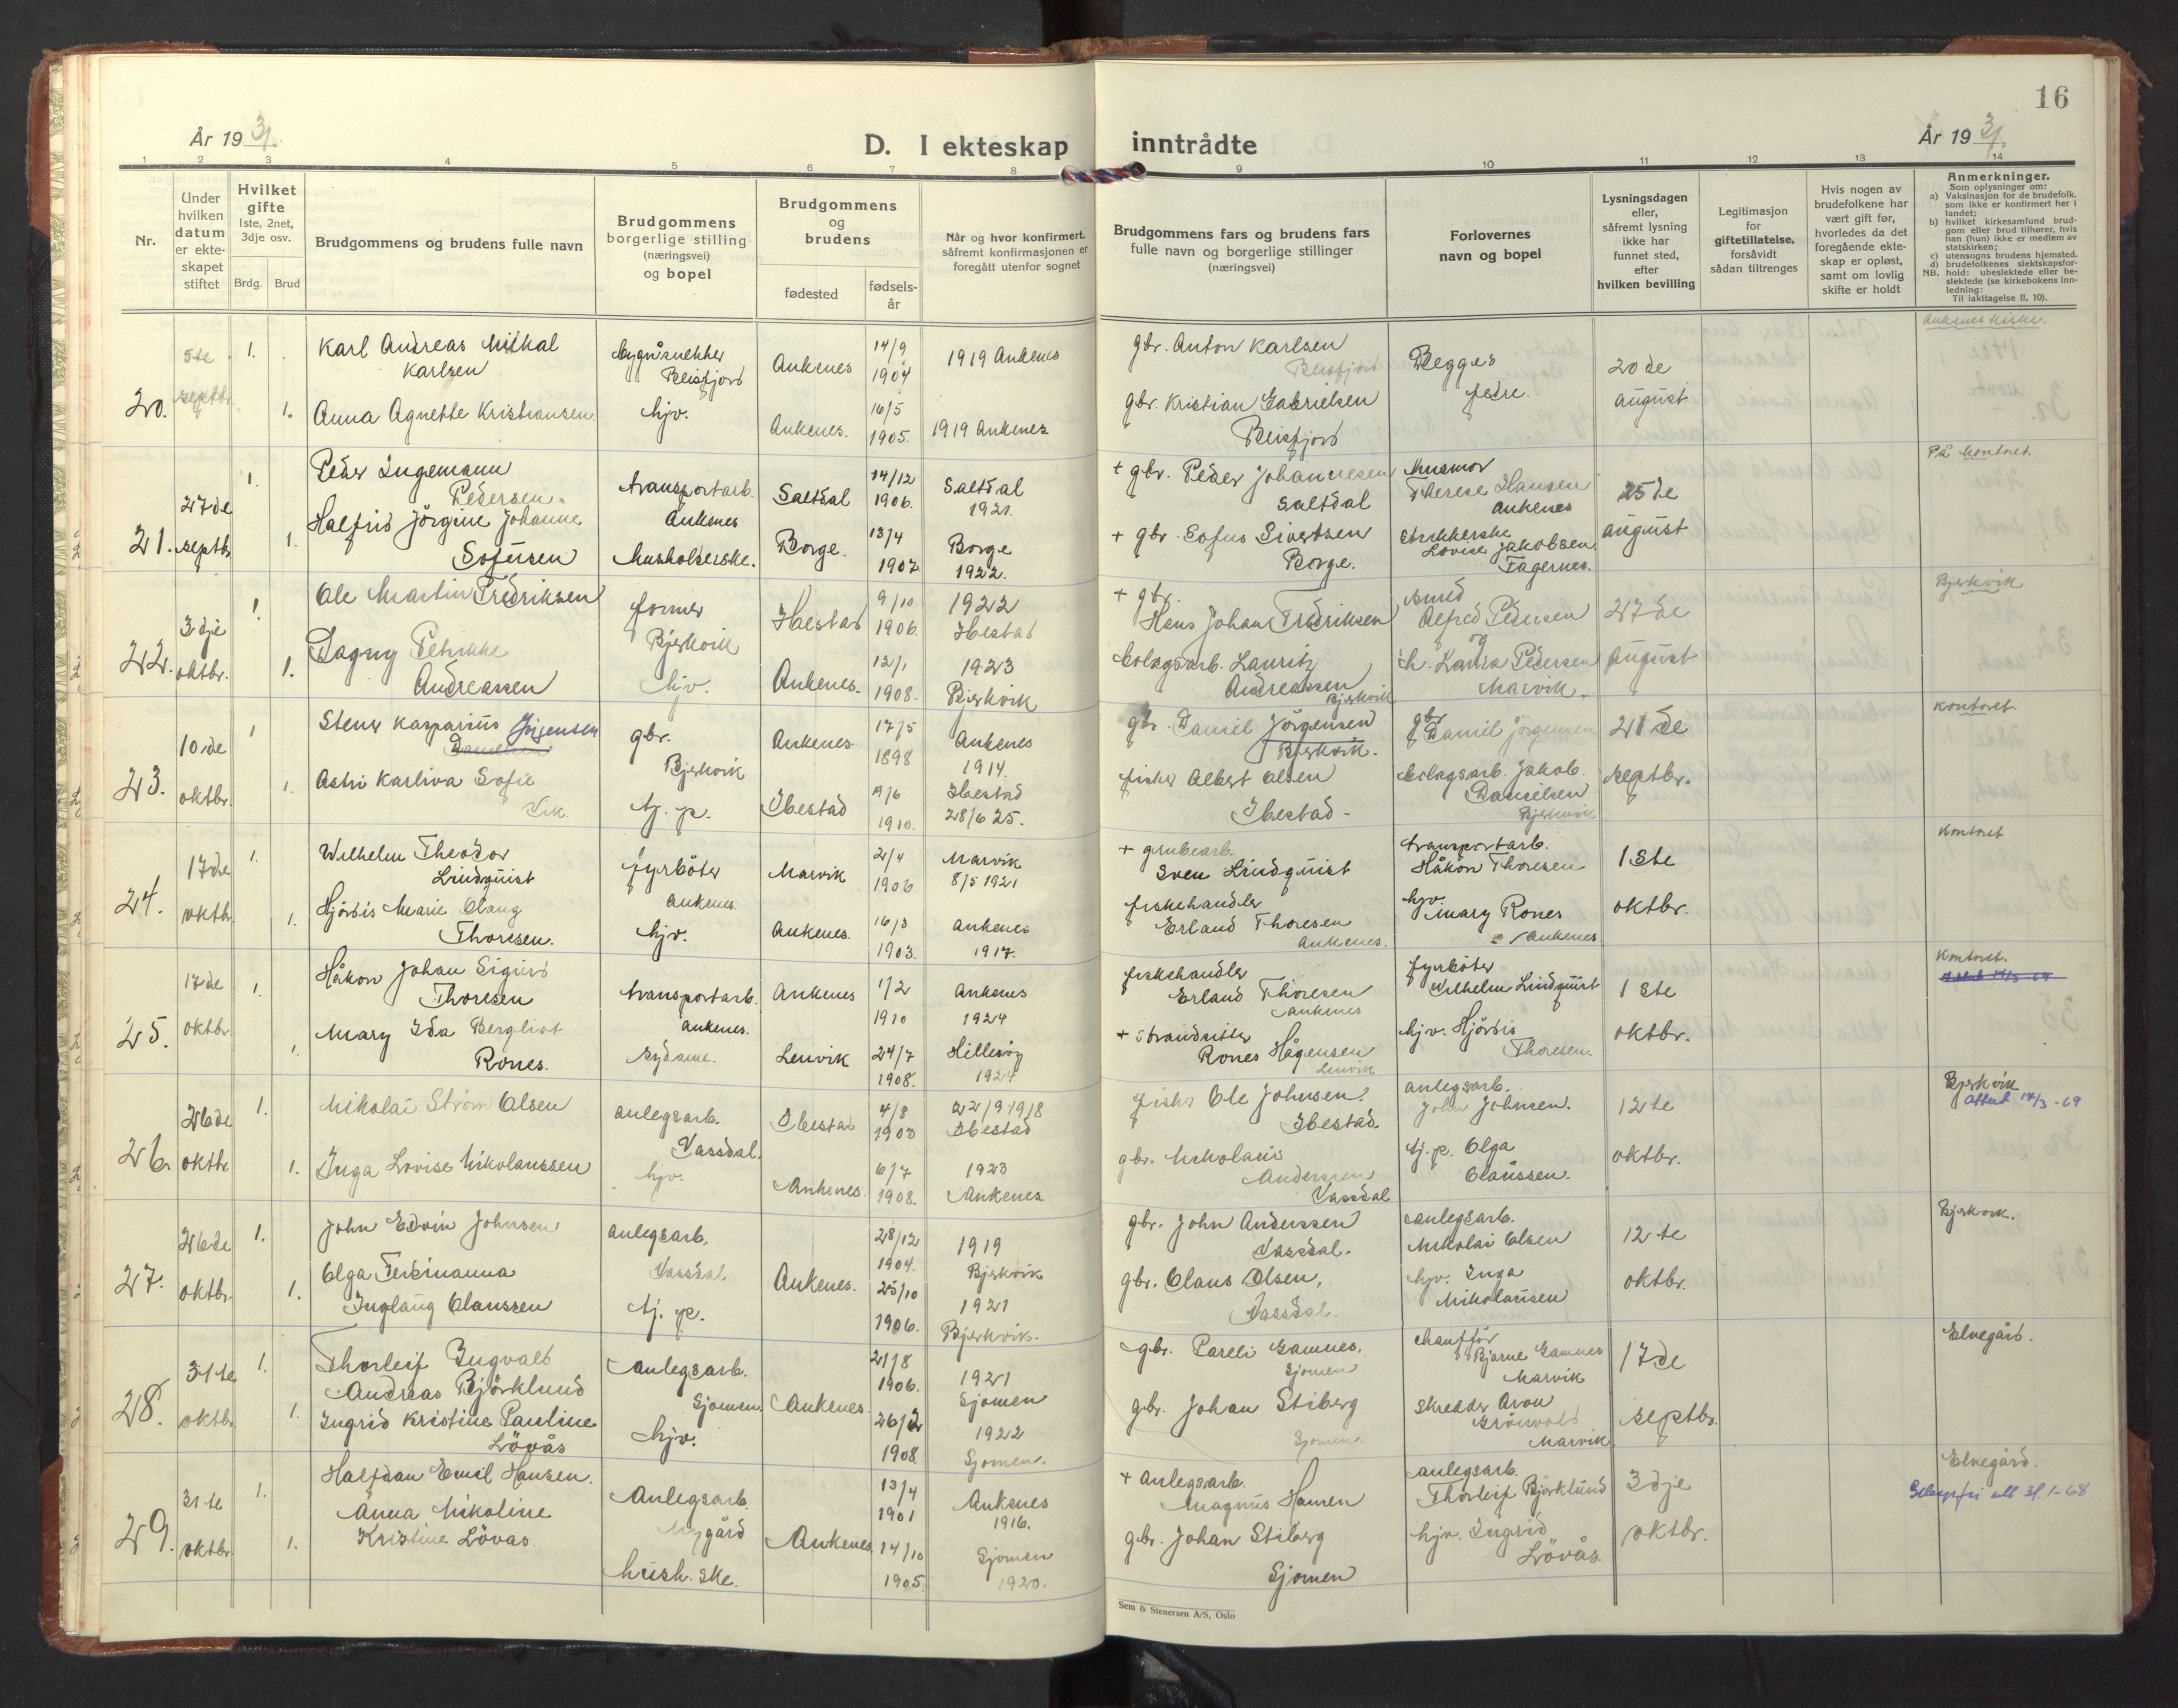 16
År 1931.
D. I ekteskap inntrådte
År 1931.
1 2 3 4 5 6 7 8 9 10 11 12 13 14
Nr.
Under hvilken datum er ekte-skapet stiftet
Hvilket gifte
1ste, 2net, 3dje osv.
Brdg. Brud
Brudgommens og brudens fulle navn
Brudgommens borgerlige stilling (næringsvei) og bopel
Brudgommens og brudens
fødested
fødsels-år
Når og hvor konfirmert, såfremt konfirmasjonen er foregått utenfor sognet
Brudgommens fars og brudens fars fulle navn og borgerlige stillinger (næringsvei)
Forlovernes navn og bopel
Lysningsdagen eller, såfremt lysning ikke har funnet sted, efter hvilken bevilling
Legitimasjon for giftetillatelse, forsåvidt sådan tiltrenges
Hvis nogen av brudefolkene har vært gift før, hvorledes da det foregående ekte-skap er opløst, samt om lovlig skifte er holdt
Anmerkninger.
Som oplysninger om:
a) Vaksinasjon for de brudefolk, som ikke er konfirmert her i landet;
b) hvilket kirkesamfund brud-gom eller brud tilhører, hvis han (hun) ikke er medlem av statskirken;
c) utensogns brudens hjemsted.
d) brudefolkenes slektskapsfor-hold: ubeslektede eller be-slektede (se kirkebokens inn-ledning:
NB.
Til iakttagelse II. 10).
20. 5te septbr. 1. Karl Andreas Mikal Karlsen
bygnsnekker Beisfjord Ankenes 14/9 1904 1919 Ankenes
gbr. Anton Karlsen Beisfjord
Begges fedre. 20de august
Ankenes kirke.
1. Anna Agnette Kristiansen hjv. Ankenes. 16/5 1905. 1919 Ankenes
gbr. Kristian Gabrielsen Beisfjord
21. 27de septbr. 1. Peder Ingemann Pedersen.
transportarb. Ankenes Saltdal 14/12 1906. Saltdal 1921.
+ gbr. Peder Johannesen Saltdal
Husmor Therese Hansen Ankenes
25de august
På kontoret.
1. Halfrid Jörgine Johanne Sofusen
Husholderske. Borge. 13/4 1907 Borge 1922.
+ gbr. Sofus Sivertsen Borge.
Lovise Jakobsen. Fagernes.
22. 3dje oktbr. 1. Ole Martin Fredriksen
former Bjerkvik Ibestad 9/10 1906. 1922 Ibestad
+ gbr. Hans Johan Fredriksen
smed Alfred Pedersen og
27de august
Bjerkvik
1. Dagny Petrikke Andreassen
hjv. Ankenes. 12/1 1908. 1923 Bjerkvik
bolagsarb. Lauritz Andreassen Bjerkvik
h. Laura Pedersen Narvik.
23. 10de oktbr. 1 Stener Kasparius Jörgensen
gbr. Bjerkvik Ankenes 17/5 1898 Ankenes 1914.
gbr. Daniel Jörgensen Bjerkvik.
gbr. Daniel Jörgensen
21de septbr.
kontoret.
1. Astri Karliva Sofie Vik.
tj. p. Ibestad 19/6 1910. Ibestad 28/6 25.
fisker Albert Olsen Ibestad.
bolagsarb. Jakob Danielsen Bjerkvik
24. 17de oktbr. 1. Wilhelm Theodor Lindquist
fyrböter Ankenes. Narvik 2/4 1906 Narvik 8/5 1921
+ grubearb. Sven Lindquist
transportarb. Håkon Thoresen
1ste oktbr.
kontoret
1. Hjördis Marie Olaug Thoresen.
hjv. Ankenes. 16/3 1903. Ankenes 1917.
fiskehandler Erland Thoresen Ankenes.
hjv. Mary Rones Ankenes
25. 17de oktbr. 1. Håkon Johan Sigurd Thoresen
transportarb. Ankenes. Ankenes 1/2 1910 Ankenes 1924
fiskehandler Erland Thoresen Ankenes
fyrböter Wilhelm Lindquist
1ste oktbr.
Kontoret.
1. Mary Ida Bergliot Rones.
sydame. Lenvik 24/7 1908. Hillesöy 1924
+ strandsitter Rones Hågensen Lenvik
hjv. Hjördis Thoresen.
26. 26de oktbr. 1. Nikolai Ström Olsen
anlegsarb. Vassdal. Ibestad 4/8 1903 22/9 1918 Ibestad
fisker Ole Johnsen. Ibestad.
anlegsarb. John Johnsen.
12te oktbr.
Bjerkvik
Attest 14/3-69
1. Inga Lovise Nikolaussen
hjv. Ankenes. 6/7 1908. 1923 Ankenes
gbr. Nikolaus Anderssen Vassdal
tj. p. Olga Claussen.
27. 26de oktbr. 1. John Edvin Johnsen
anlegsarb. Vassdal. Ankenes. 28/12 1904. 1919 Bjerkvik
gbr. John Anderssen Vassdal.
anlegsarb. Nikolai Olsen
12te oktbr.
Bjerkvik.
1. Olga Ferdinanna Inglaug Claussen
tj. p. 25/10 1906. 1921 Bjerkvik.
gbr. Claus Olsen, Vassdal.
hjv. Inga Nikolausen
28. 31te oktbr. 1. Thorleif Ingvald Andreas Björklund
Anlegsarb. Sjomen. Ankenes. 21/8 1906. 1921 Sjomen
gbr. Pareli Gamnes. Sjomen
chaufför Bjarne Gamnes Narvik
17de septbr.
Elvegård.
1. Ingrid Kristine Pauline Lövås
hjv. 26/2 1908 1922 Sjomen.
gbr. Johan Stiberg Sjomen.
skredder Aron Grönvold Narvik
29. 31te oktbr. 1. Halfdan Emil Hansen.
Anlegsarb. Nygård Ankenes 13/4 1901 Ankenes 1916.
+ Anlegsarb. Magnus Hansen
anlegsarb. Thorleif Björklund
3dje oktbr.
Elvegård.
31.1-68
1. Anna Nikoline Kristine Lövås.
hush.ske. 14/10 1905. Sjomen 1920.
gbr. Johan Stiberg Sjomen
hjv. Ingrid Lövås.
Sem & Stenersen A/S, Oslo